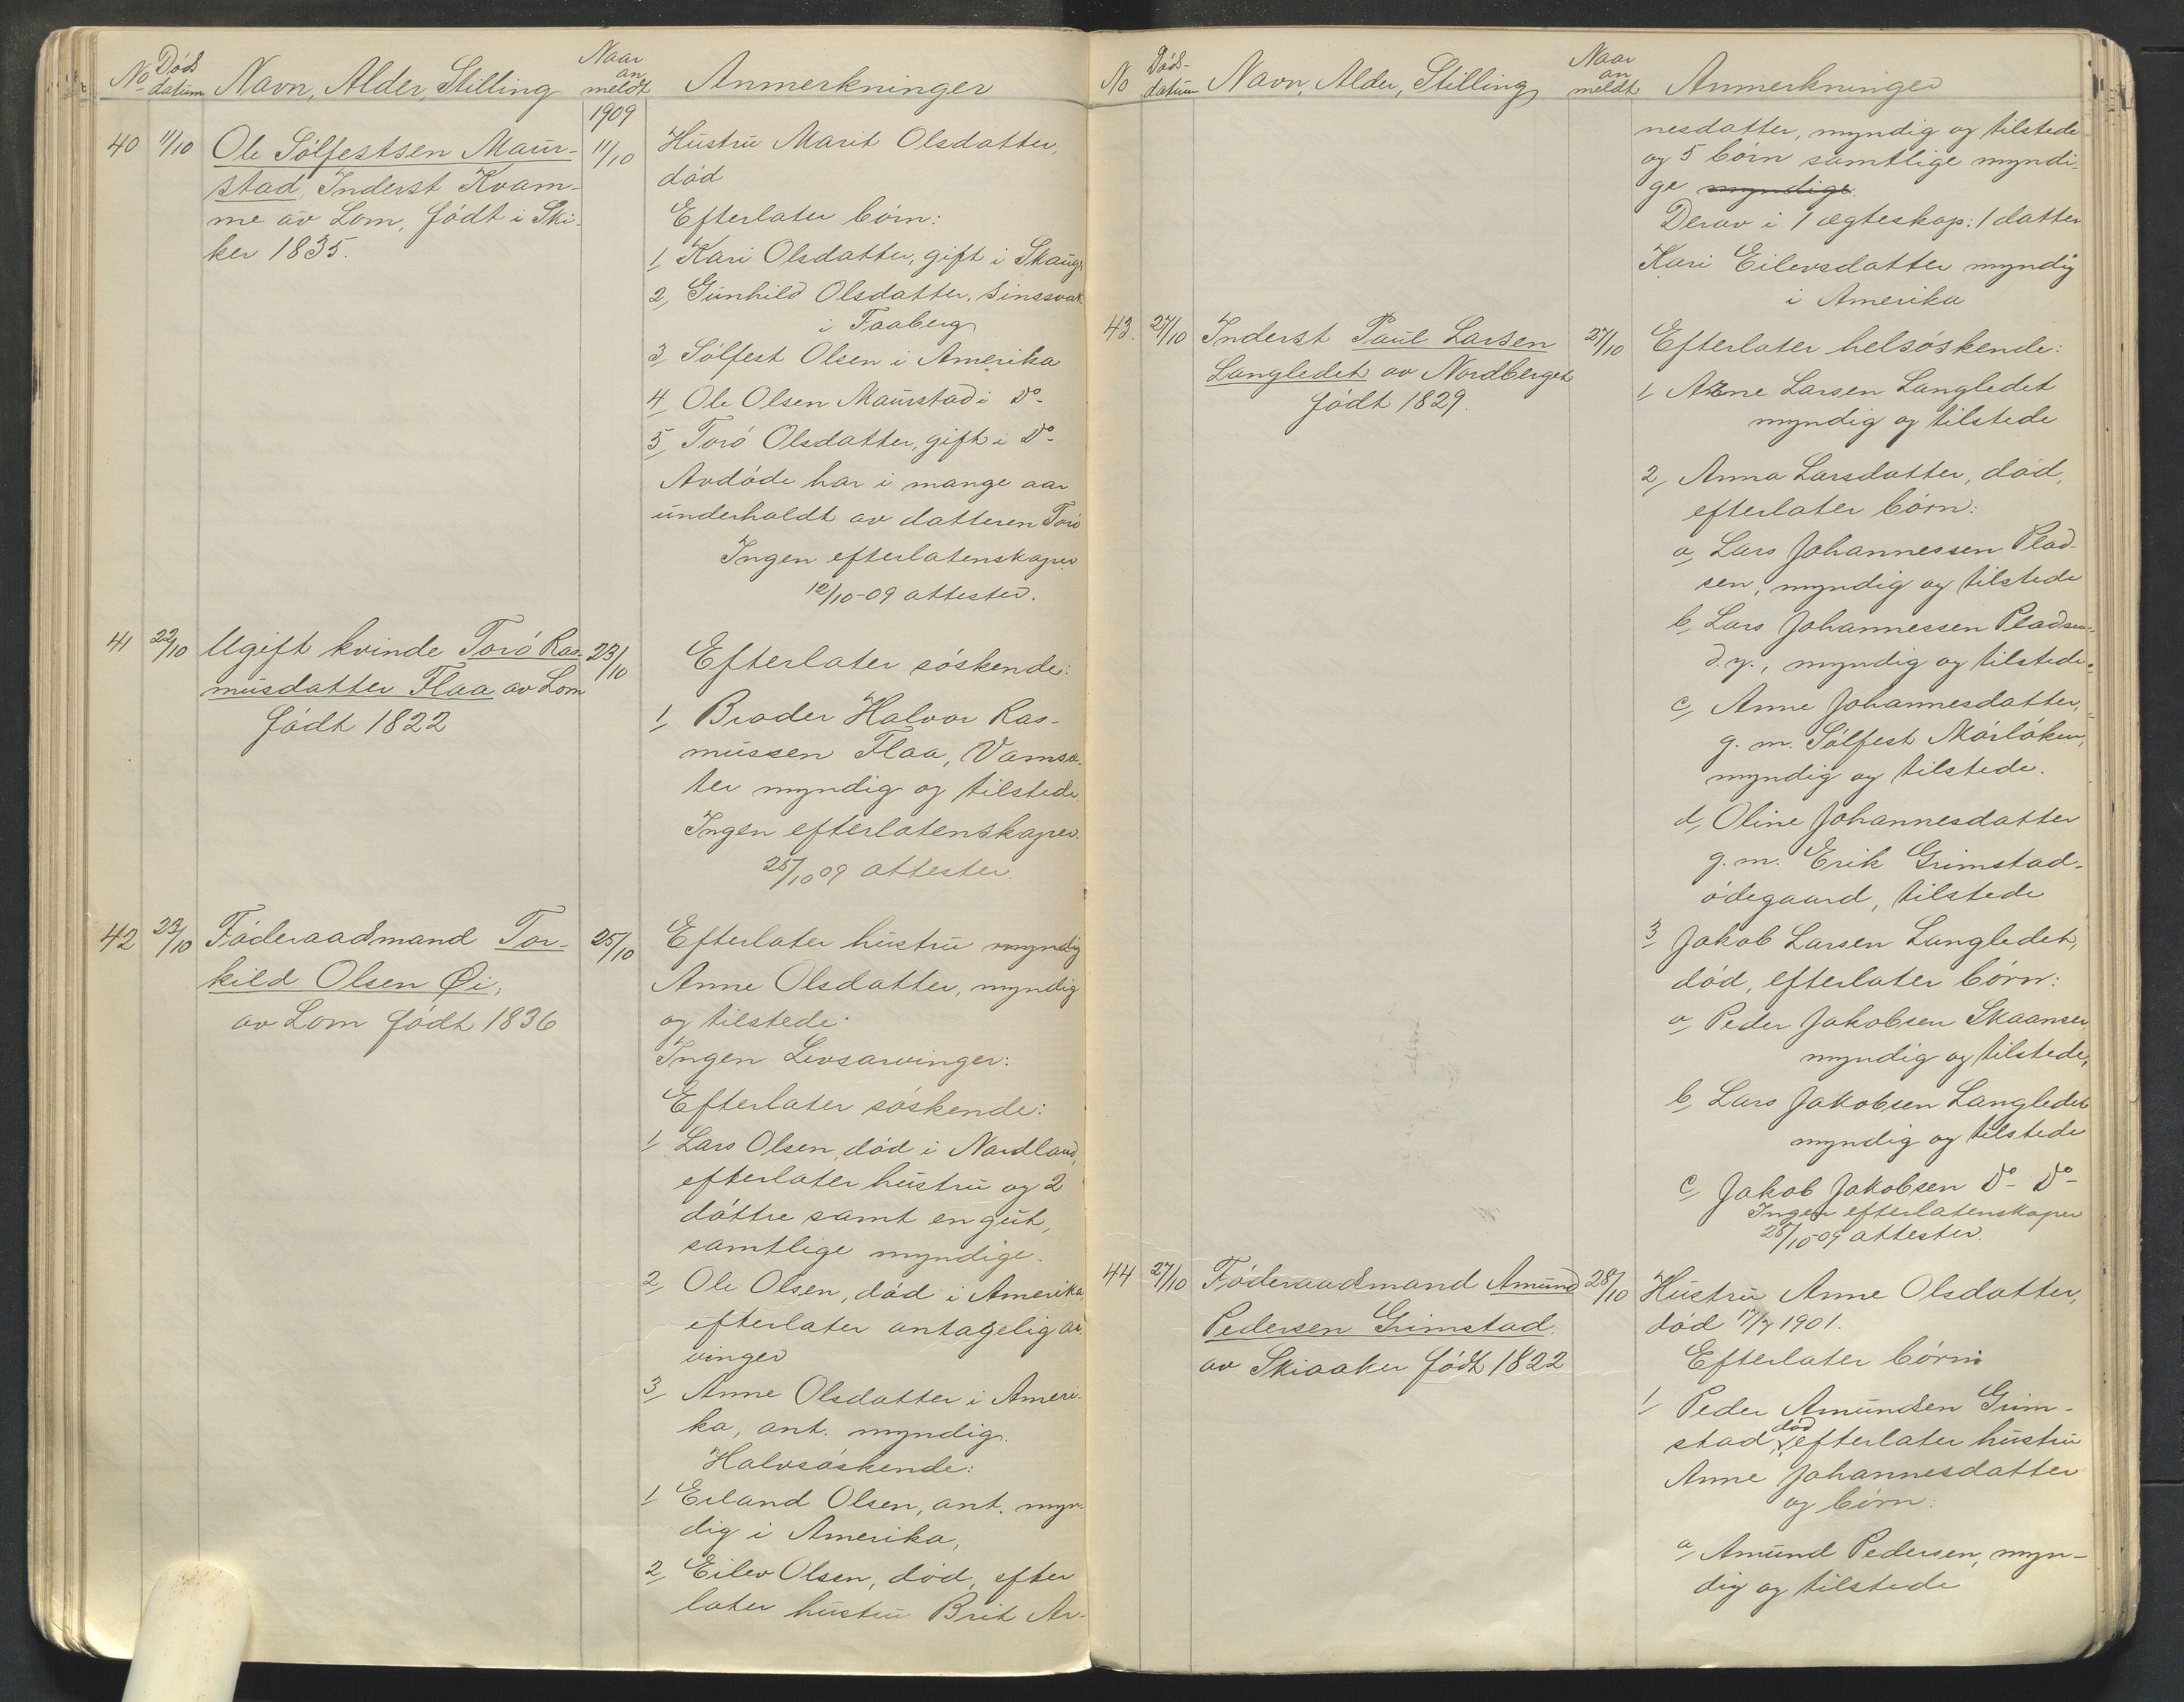 No Døds datum Navn, Alder, Stilling Naar an meldt Anmerkninger
1909
40 11/10 Ole Sølfestsen Maur- 11/10 Hustru Marit Olsdatter,
stad, Inderst Kvam- død
me av Lom, født i Ski- Efterlater børn:
ker 1835.
1, Kari Olsdatter, gift i Skaug
2, Gunhild Olsdatter,
i Faaberg
3, Sølfest Olsen i Amerika
4, Ole Olsen Maurstad i Do-
5, Torø Olsdatter, gift i Do-
Avdøde har i mange aar
underholdt av datteren Torø
Ingen efterlatenskaper
12/10-09 attester.
41 22/10 Ugift kvinde Torø Ras- 23/10 Efterlater søskende:
musdatter Flaa av Lom
født 1822
1, Broder Halvor Ras-
mussen Flaa, Vamsæ-
ter myndig og tilstede
Ingen efterlatenskaper.
25/10 09 attester.
42 23/10 Føderaadsmand Tor- 25/10 Efterlater hustru myndig
kild Olsen Øi, Anne Olsdatter, myndig
av Lom født 1836 og tilstede.
Ingen Livsarvinger:
Efterlater søskende:
1, Lars Olsen, død i Nordland,
efterlater hustru og 2
døttre samt en gut,
samtlige myndige.
2, Ole Olsen, død i Amerika,
efterlater antagelig ar-
vinger
3, Anne Olsdatter i Ameri-
ka, ant. myndig.
Halvsøskende:
1, Erland Olsen, ant. myn-
dig i Amerika,
2, Eilev Olsen, død, efter
later hustru Brit Ar-
No Døds- datum Navn, Alder, Stilling Naar an meldt Anmerkninger
nesdatter, myndig og tilstede
og 5 børn samtlige myndi-
ge myndige.
Derav i 1 ægteskap: 1 datter
Kari Eilevsdatter myndig
i Amerika
43. 27/10 Inderst Paul Larsen 27/10 Efterlater helsøskende:
Langledet av Nordberget
født 1829.
1, Arne Larsen Langledet
myndig og tilstede
2, Anna Larsdatter, død,
efterlater børn:
a, Lars Johannessen Plad-
sen, myndig og tilstede
b, Lars Johannessen Pladsen
d.y., myndig og tilstede.
c, Anne Johannesdatter,
g. m. Sølfest Mørløken,
myndig og tilstede.
d, Oline Johannesdatter
g. m. Erik Grimstad-
ødegaard, tilstede
3, Jakob Larsen Langledet,
død, efterlater børn:
a, Peder Jakobsen Skaanser
myndig og tilstede,
b, Lars Jakobsen Langledet
myndig og tilstede
c, Jakob Jakobsen Do- Do-
Ingen efterlatenskaper
28/10-09 attester.
44 27/10 Føderaadsmand Amund 28/10 Hustru Anne Olsdatter,
Pedersen Grimstad. død 17/7 1901.
av Skiaaker født 1822 Efterlater børn:
1, Peder Amundsen Grim-
stad, død efterlater hustru
Anne Johannesdatter
og børn:
a, Amund Pedersen, myn-
dig og tilstede